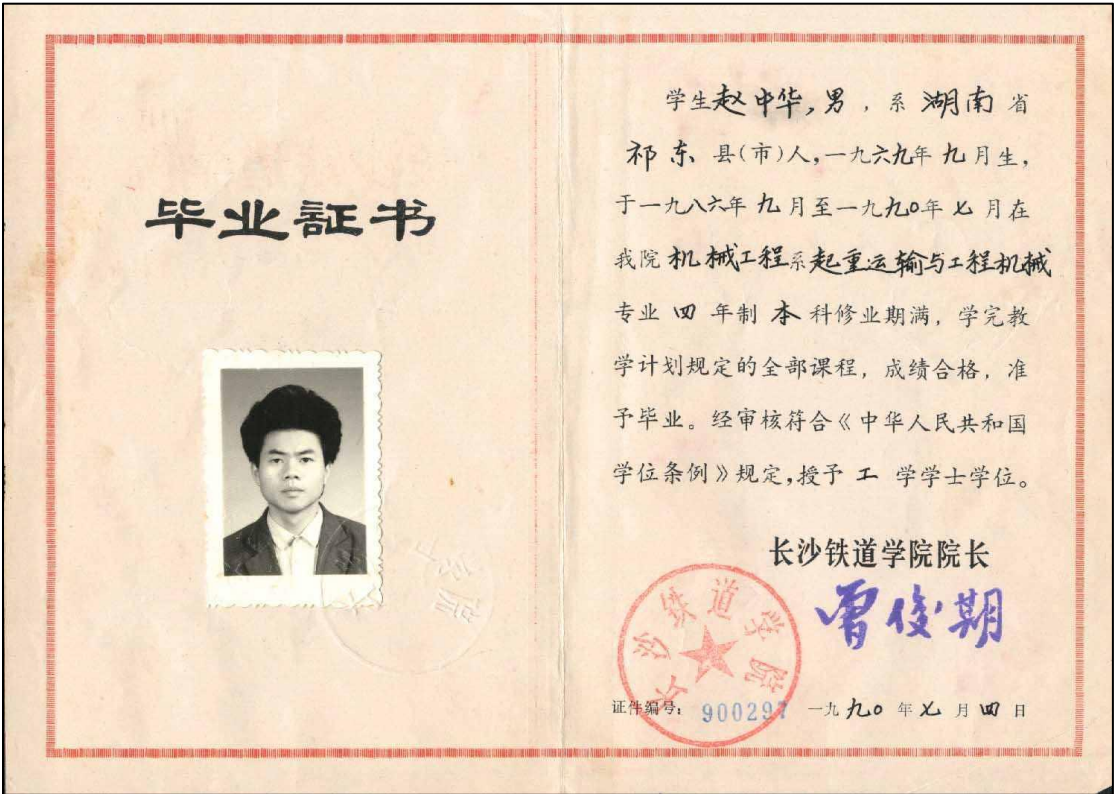 毕业証书
学生赵中华,男,系 湖南 省
祁东 县(市)人,一九六九年 九月生,
于一九八六年 九月至一九九〇年 七 月在
我院 机械工程系起重运输与工程机械
专业 四 年制 本 科修业期满,学完教
学计划规定的全部课程,成绩合格,准
予毕业。经审核符合《中华人民共和国
学位条例》规定,授予 工 学学士学位。
长沙铁道学院院长
曾俊期
长沙铁道学院
证件编号: 900297 一九九〇 年 七 月 四 日